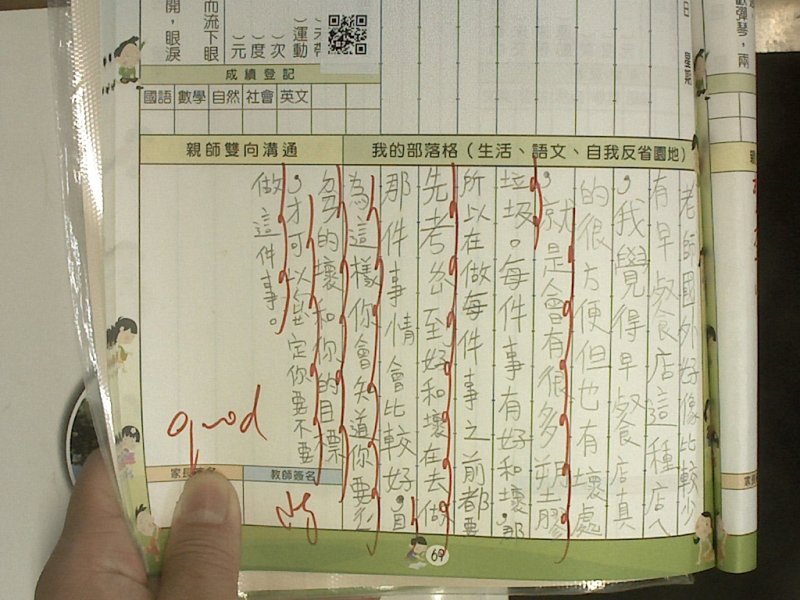 開，眼淚
而流下眼
）元
）度
）次
）運動
成績登記
國語 數學 自然 社會 英文
親師雙向溝通
我的部落格（生活、語文、自我反省園地）
老師國外好像比較少
有早餐店這種店
，我覺得早餐店真
的很方便但也有壞處
，就是會有很多塑膠
垃圾。每件事有好和壞，那
所以在做每件事之前都要
先考 至好和壞在去做
那件事情會比較好，
為這樣你會知道你要
的壞和你的目標
，才可以 定你要不要
做這件事。
good
家長簽名
教師簽名
69
歡彈琴，兩